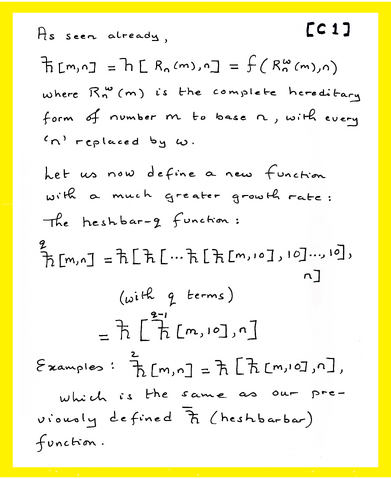 [C1]
As seen already,
ħ[m,n] = ħ[Rₙ(m),n] = f(Rₙ^ω(m),n)
where Rₙ^ω(m) is the complete hereditary
form of number m to base n, with every
'n' replaced by ω.
Let us now define a new function
with a much greater growth rate:
The heshbar-q function:
^qħ[m,n] = ħ[ħ[...ħ[ħ[m,10],10]...,10],
n]
(with q terms)
= ħ[^(q-1)ħ[m,10],n]
Examples: ^2ħ[m,n] = ħ[ħ[m,10],n],
which is the same as our pre-
viously defined ħ̄ (heshbarbar)
function.